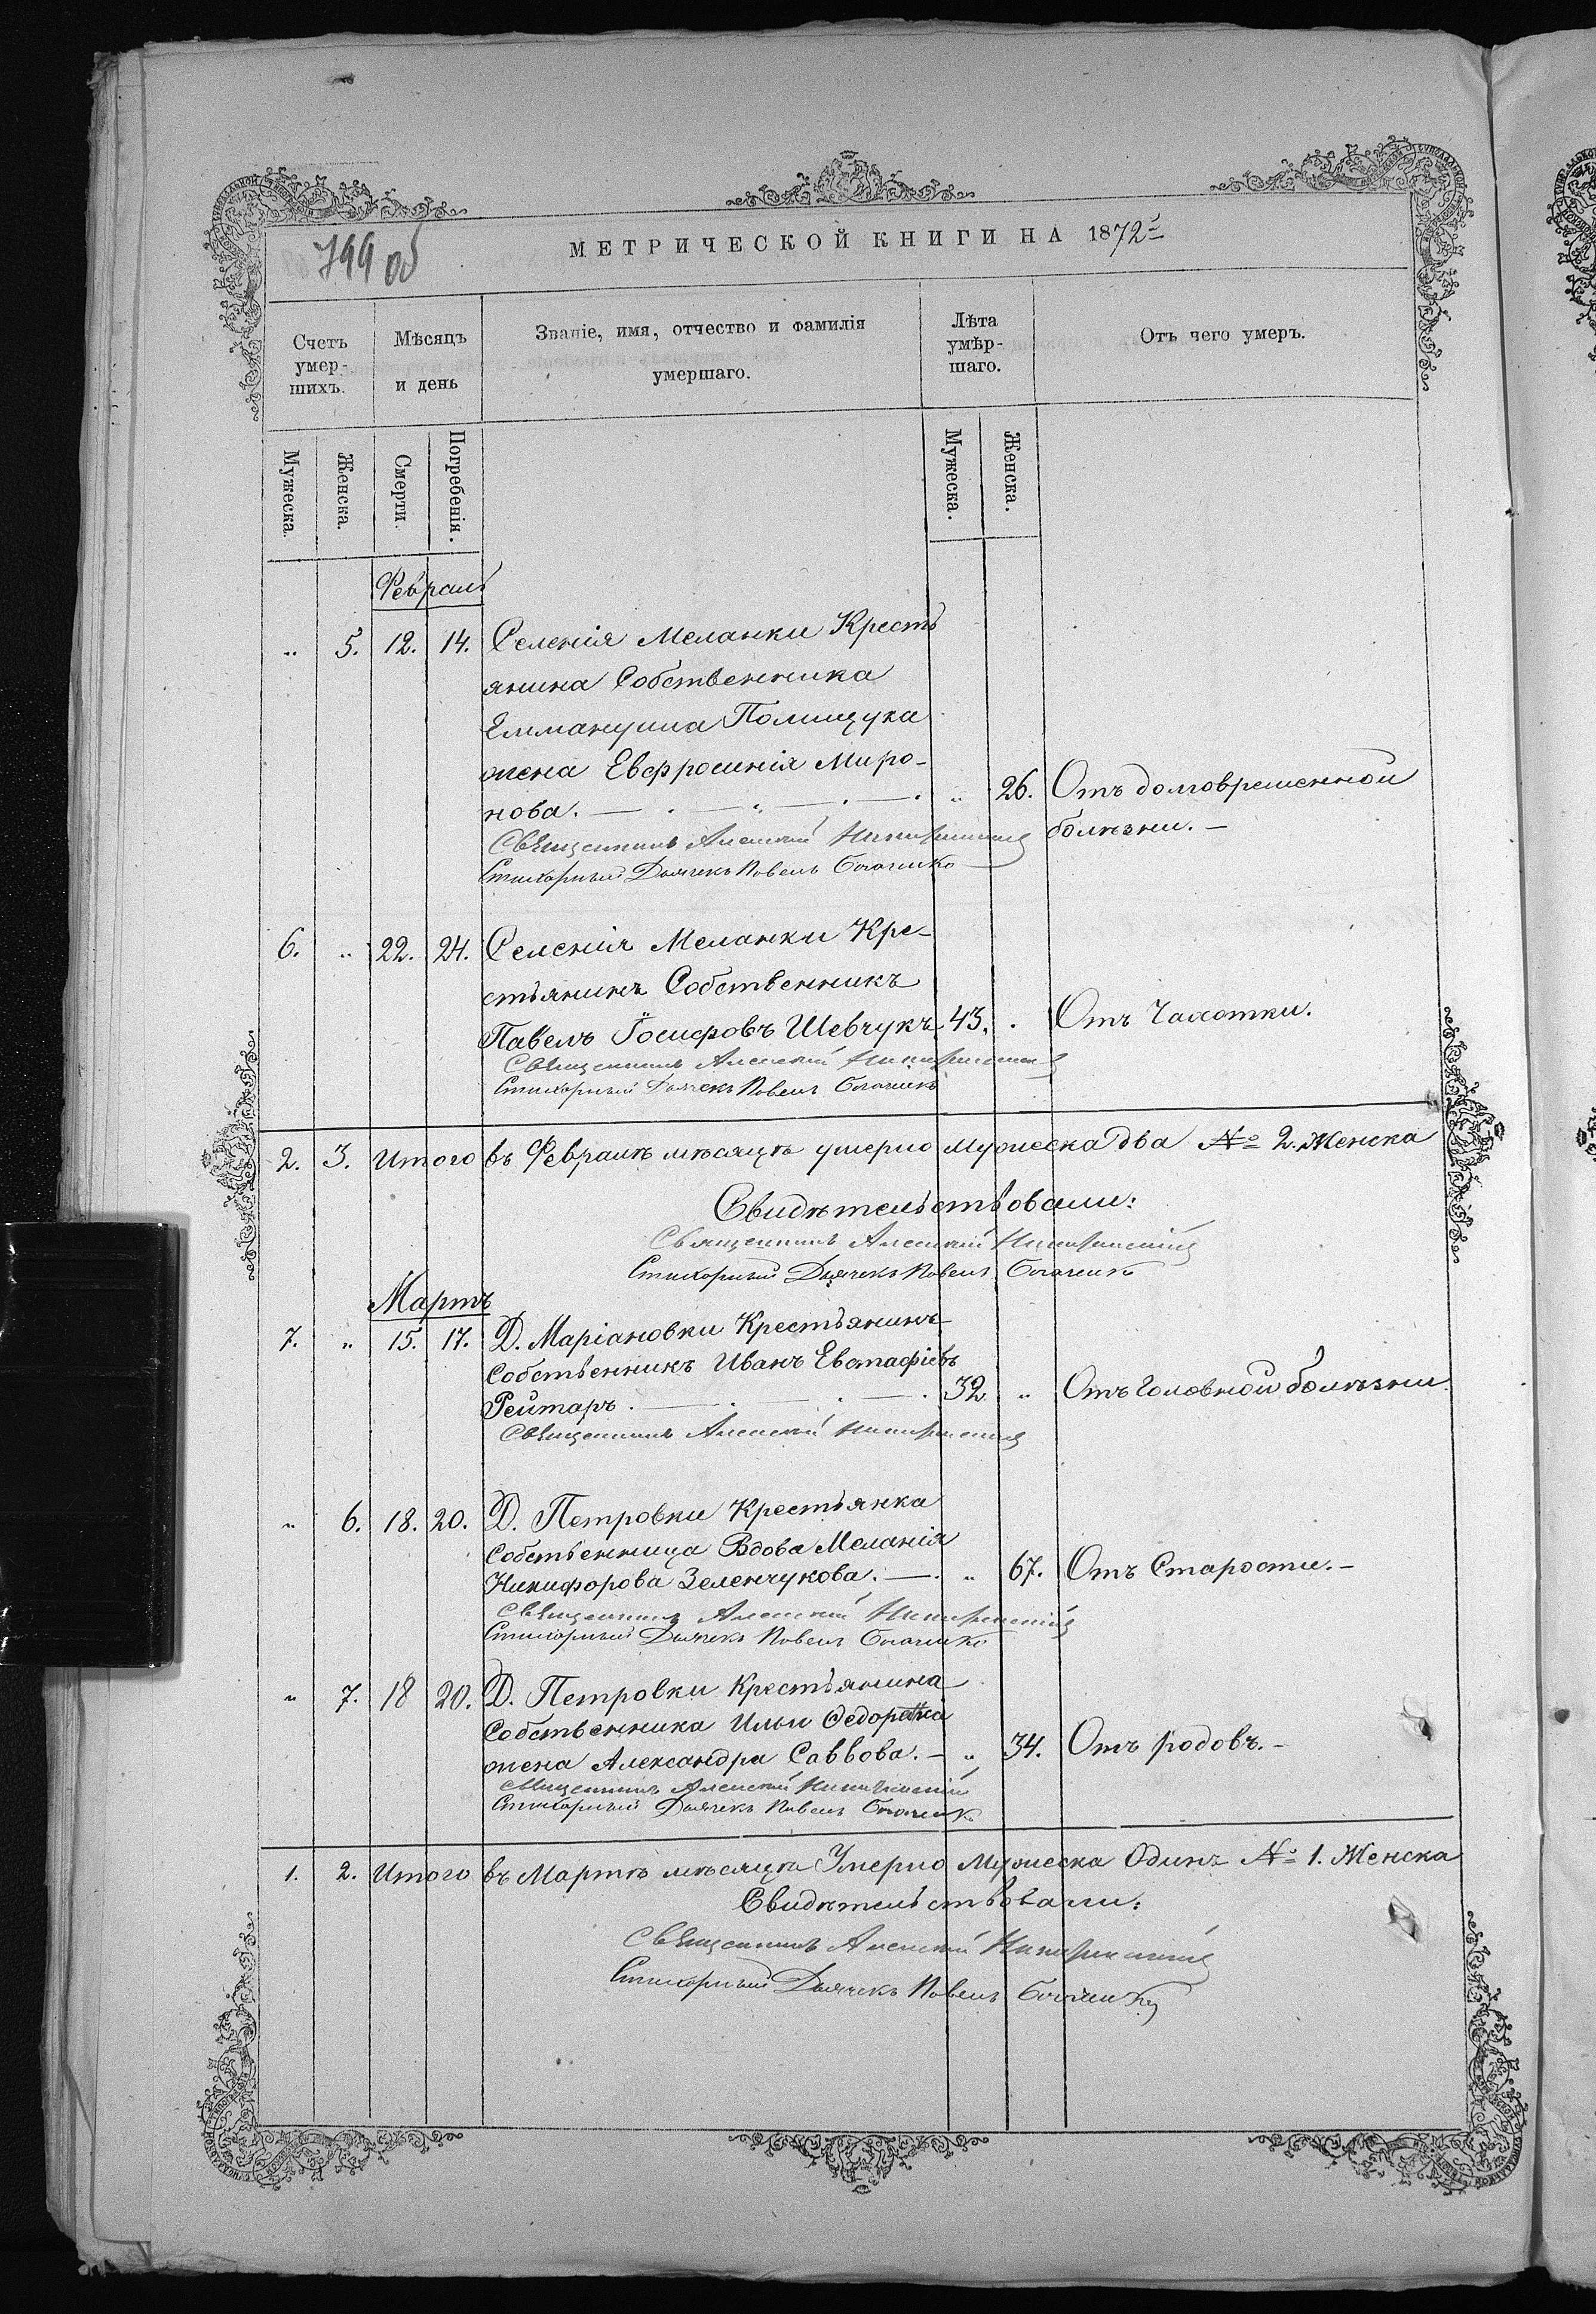 799 об
МЕТРИЧЕСКОЙ КНИГИ НА 1872 г.
Счетъ умер-шихъ.
Мѣсяцъ и день
Званіе, имя, отчество и фамилія умершаго.
Лѣта умѣр-шаго.
Отъ чего умеръ.
Мужеска.
Женска.
Смерти.
Погребенія.
Мужеска.
Женска.
Февраль
„ 5. 12. 14. Селенія Меланки Кресть
янина Собственника
Еммануила Полищука
жена Евфросинія Миро-
нова. „ 26. Отъ долговременной
болѣзни.
Священникъ Алексій
Стихорный Дьячекъ Павелъ
6. „ 22. 24. Селенія Меланки Кре-
стьянинъ Собственникъ
Павелъ Іосифовъ Шевчукъ 43. „ Отъ Чахотки.
Священникъ Алексій
Стихорный Дьячекъ Павелъ
2. 3. Итого въ Февралѣ мѣсяцѣ умерло мужеска два № 2. Женска
Свидѣтельствовали:
Священникъ Алексій
Стихорный Дьячекъ Павелъ
Мартъ
7. „ 15. 17. Д. Маріановки Крестьянинъ
Собственникъ Иванъ Евстафіевъ
Рейтаръ. 32 „ Отъ Головной болѣзни
Священникъ Алексій
„ 6. 18. 20. Д. Петровки Крестьянка
Собственница Вдова Меланія
Никифорова Зеленчукова. „ 67. Отъ Старости.
Священникъ Алексій
Стихорный Дьячекъ Павелъ
„ 7. 18 20. Д. Петровки Крестьянина
Собственника Ильи
жена Александра Саввова. „ 34. Отъ родовъ.
Священникъ Алексій
Стихорный Дьячекъ Павелъ
1. 2. Итого въ Мартѣ мѣсяцѣ Умерло Мужеска Одинъ № 1. Женска
Свидѣтельствовали:
Священникъ Алексій
Стихорный Дьячекъ Павелъ